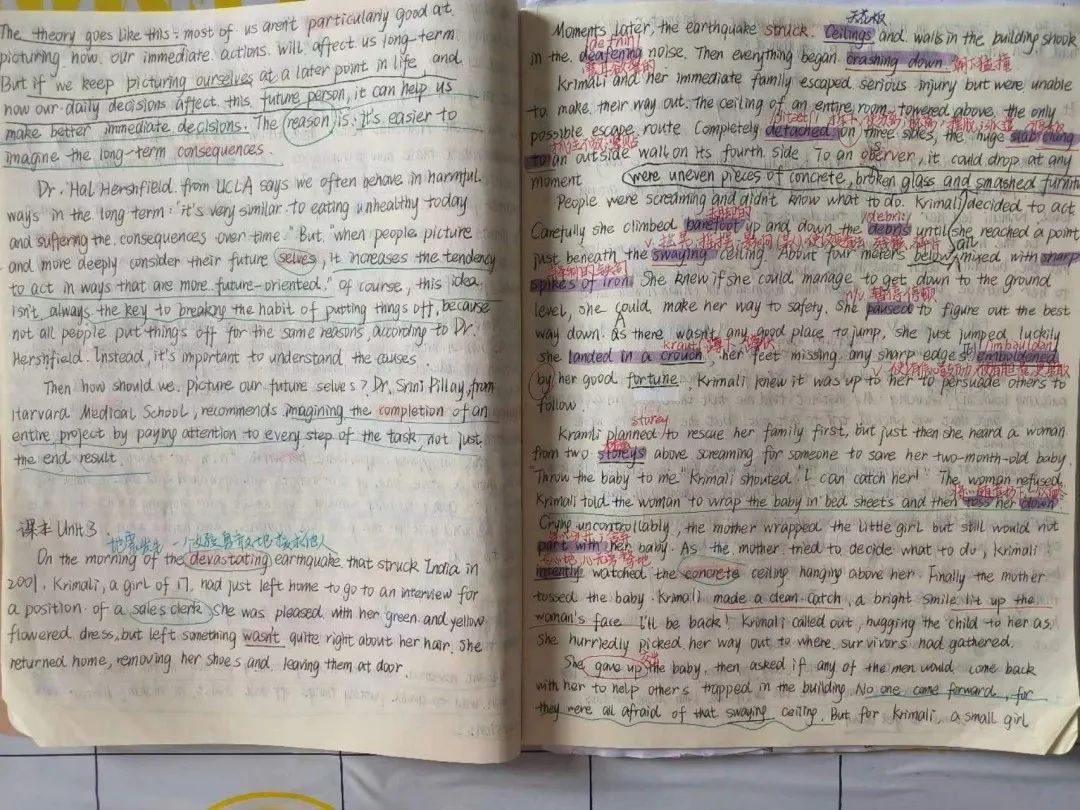 The theory goes like this: most of us aren't particularly good at
picturing how our immediate actions will affect us long-term.
But if we keep picturing ourselves at a later point in life and
how our daily decisions affect this future person, it can help us
make better immediate decisions. The reason is: it's easier to
imagine the long-term consequences.
Dr. Hal Hershfield from UCLA says we often behave in harmful
ways "in the long term: "it's very similar to eating unhealthy today
and suffering the consequences over time." But "when people picture
and more deeply consider their future selves, it increases the tendency
to act in ways that are more future-oriented." Of course, this idea
isn't always the key to breaking the habit of putting things off, because
not all people put things off for the same reasons, according to Dr.
Hershfield. Instead, it's important to understand the causes.
Then how should we picture our future selves? Dr. Srini Pillay, from
Harvard Medical School, recommends imagining the completion of an
entire project by paying attention to every step of the task, not just
the end result.
课本 Unit 3
On the morning of the devastating earthquake that struck India in
2001, Krimali, a girl of 17, had just left home to go to an interview for
a position of a sales clerk. She was pleased with her green and yellow
flowered dress, but left something wasn't quite right about her hair. She
returned home, removing her shoes and leaving them at door.
天花板
Moments later, the earthquake struck. Ceilings and walls in the building shook
in the deafening noise. Then everything began crashing down.
Krimali and her immediate family escaped serious injury but were unable
to make their way out. The ceiling of an entire room towered above, the only
possible escape route. Completely detached on three sides, the huge slab clung
to an outside wall on its fourth side. To an observer, it could drop at any
moment
were uneven pieces of concrete, broken glass and smashed furnit
People were screaming and didn't know what to do. Krimali decided to act
/debri:/
Carefully she climbed barefoot up and down the debris until she reached a point
just beneath the swaying ceiling. About four meters below, mixed with sharp
spikes of iron. She knew if she could manage to get down to the ground
level, she could make her way to safety. She paused to figure out the best
way down. As there wasn't any good place to jump, she just jumped, luckily
she landed in a crouch, her feet missing any sharp edges. Emboldened
by her good fortune, Krimali knew it was up to her to persuade others to
follow.
storey
Kramli planned to rescue her family first, but just then she heard a woman
from two storeys above screaming for someone to save her two-month-old baby.
"Throw the baby to me" Krimali shouted. "I can catch her!" The woman refused.
Krimali told the woman to wrap the baby in bed sheets and then toss her down
Crying uncontrollably, the mother wrapped the little girl but still would not
part with her baby. As the mother tried to decide what to do, Krimali
intently watched the concrete ceiling hanging above her. Finally the mother
tossed the baby. Krimali made a clean catch, a bright smile lit up the
woman's face. I'll be back! Krimali called out, hugging the child to her as
she hurriedly picked her way out to where survivors had gathered.
She gave up the baby, then asked if any of the men would come back
with her to help others trapped in the building. No one came forward, for
they were all afraid of that swaying ceiling. But for Krimali, a small girl